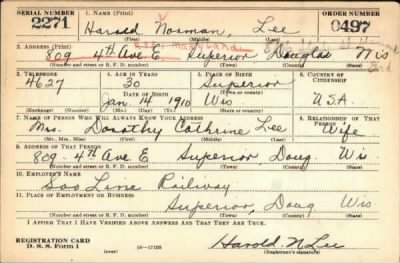 SERIAL NUMBER 1. NAME (Print) ORDER NUMBER
2271 Harold Norman, Lee 0497
(First) (Middle) (Last)
2. ADDRESS (Print)
809 4th Ave E Superior Douglas Wis
(Number and street or R. F. D. number) (Town) (County) (State)
3. TELEPHONE 4. AGE IN YEARS 5. PLACE OF BIRTH 6. COUNTRY OF CITIZENSHIP
4627 30 Superior
DATE OF BIRTH (Town or county)
Jan 14 1910 Wis U.S.A.
(Exchange) (Number) (Mo.) (Day) (Yr.) (State or country)
7. NAME OF PERSON WHO WILL ALWAYS KNOW YOUR ADDRESS 8. RELATIONSHIP OF THAT PERSON
Mrs. Dorothy Cathrine Lee Wife
(Mr., Mrs., Miss) (First) (Middle) (Last)
9. ADDRESS OF THAT PERSON
809-4th Ave E Superior Doug. Wis
(Number and street or R. F. D. number) (Town) (County) (State)
10. EMPLOYER'S NAME
Soo Line Railway
11. PLACE OF EMPLOYMENT OR BUSINESS
Superior, Doug Wis
(Number and street or R. F. D. number) (Town) (County) (State)
I AFFIRM THAT I HAVE VERIFIED ABOVE ANSWERS AND THAT THEY ARE TRUE.
REGISTRATION CARD
D. S. S. Form 1 16-17105 Harold N Lee
(Registrant's signature)